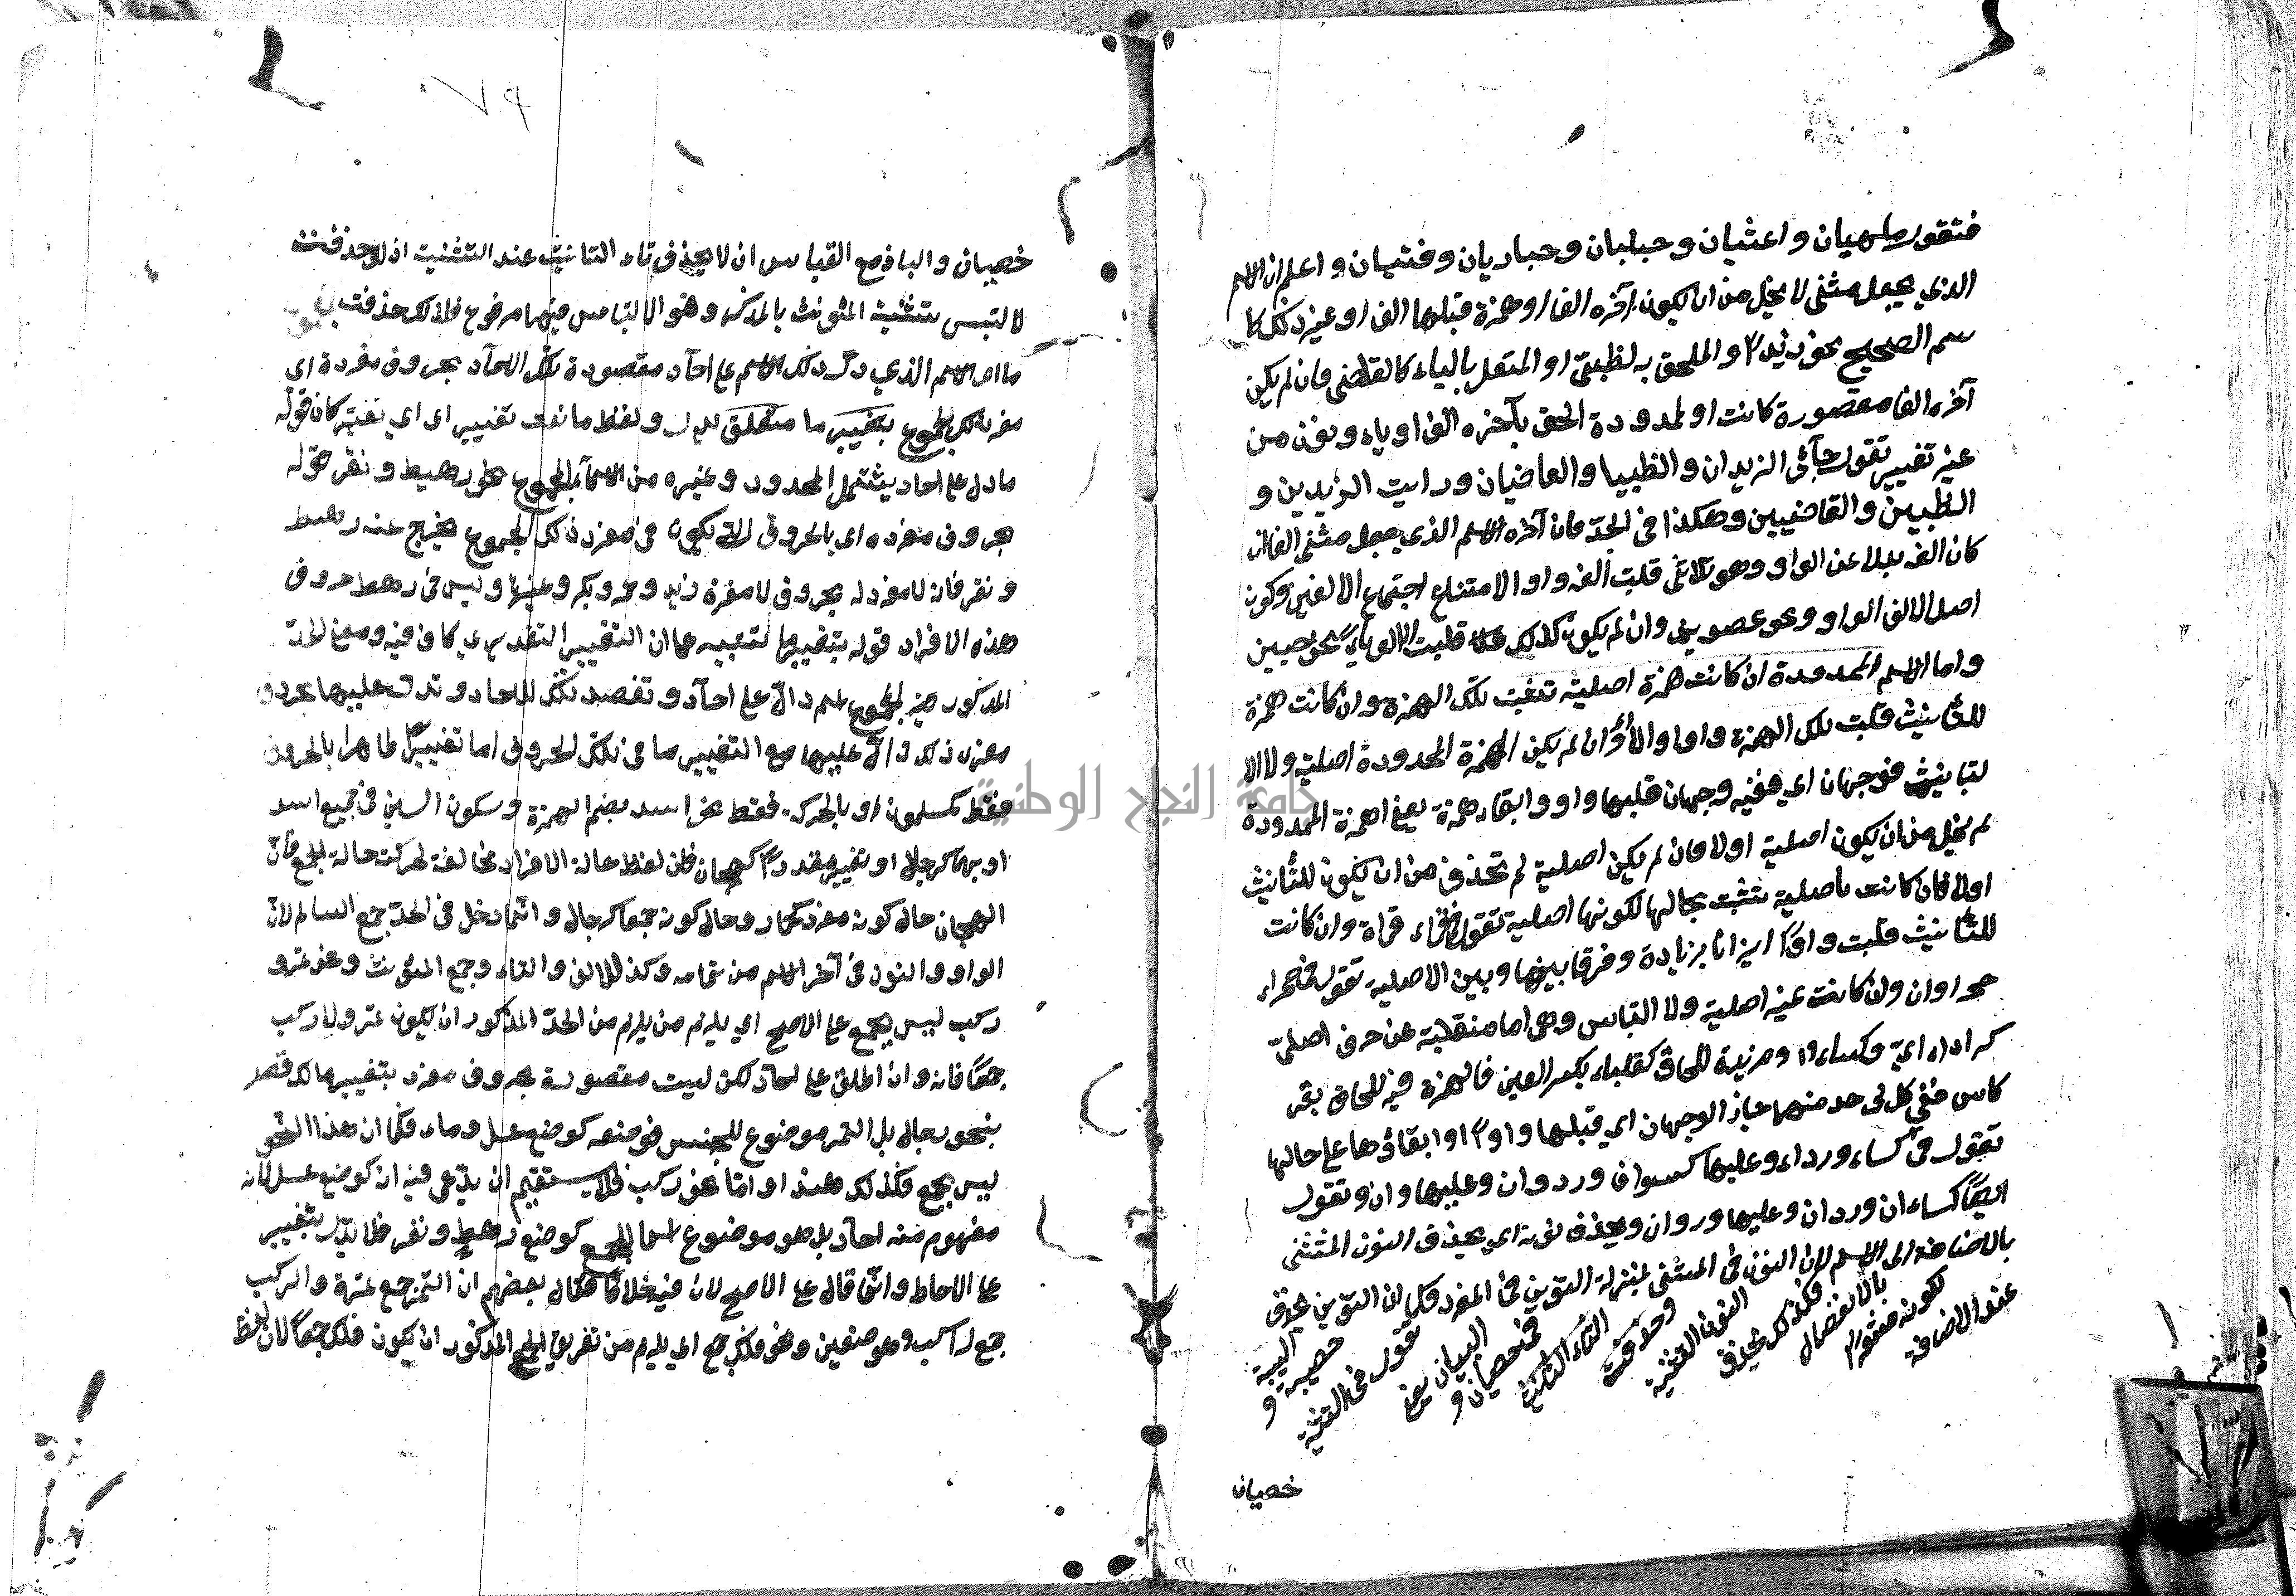 فتقول ملهيان واعشيان وحبليان وحباريان وفتيان واعلم ان الاسم
الذي يجعل مثنى لا يخل من ان يكون آخره الفا او همزة قبلها الف او غير ذلك كا
سم الصحيح نحو زيد والملحق به لظبي او المتعل بالياء كالقاضي فان لم يكن
آخره الفا مقصورة كانت او لمدودة الحق بآخره الف او ياء ونون من
غير تغيير تقول جآئى الزيدان والظبيا والعاضيان ورايت الزيدين و
الظبيين والقاضيين وهكذا في الجر فان آخره الاسم الذي يجعل مثنى الفا ان
كان الف بدلا عن الواو وهو ثلاثي قلبت الفه واوا لامتناع اجتماع الالفين وكون
اصل الالف الواو ونحو عصوين وان لم يكون كذلك قلبت الالف ياء نحو رحيين
واما الاسم الممدودة ان كانت همزة اصلية تثبت تلك الهمزة وان كانت همزة
للتأنيث قلبت تلك الهمزة واوا والا وان لم يكن الهمزة الممدودة اصلية ولا الا
لتانيث فوجهان اي ففيه وجهان قلبها واو وابقاء همزة يعني اهمزة الممدودة
لم يخل من ان يكون اصلية اولا فان لم يكن اصلية لم تحذف من ان يكون للتأنيث
اولا فان كانت اصلية تثبت بحالها لكونها اصلية تقول قراء وان كانت
للتأنيث قلبت واوا ايزانا بزيادة وفرقا بينها وبين الاصلية تقول في حمراء
حمراوان وان كانت غير اصلية ولا التباس وهي اما منقلبة عن حرف اصلي
كرداء اي وكساء او مزيدة للحاق كعلباء بكسر العين فالهمزة فيه للحاق بقر
كاس ففي كل لى حد منهما جاز الوجهان اي قبلها واوا او ابقاؤها على حالها
تقول في كساء ورداء وعليها كسوان وردوان وعليها وان وتقول
ايضا كساءان وردان وعليها وروان ويحذف نونه اي يحذف النون المثنى
بالاضافة الى الاسم لان النون في المثنى لمنزلة التنوين في المفرد فكما ان التنوين يحذف
عند الاضافة
لكونه مشعرا
بالانفصال
فكذلك يحذف
النون التثنية
وحذفت
التاء التأنيث
في خصيان و
اليان يعنى
تقول في التثنية
خصية و
الية
خصيان
خصييان والباذ مع القياس ان لا يحذف تاء التانيث عند التثنية اذ لو حذفت
لالتبس بتثنية المؤنث بالمذكر وهو الالتباس فيهما مرفوع فلذلك حذفت
ما اى الاسم الذي دل ذلك الاسم على احآد مقصودة تلك الاحآد بحروف مفردة اي
مفرد ذلك المجموع بتغيير ما متعلق بدل ولفظ ما نعت تغيير اى اي تغيير كان قوله
ما دل على احاد يشتمل المحدود وغيره من الاسمآء المجموع نحو رهيط ونفر قوله
بحروف مفرده اي بالحروف التي يكون في مفرد ذلك المجموع يخرج عنه رهط
ونفر فانه لا مفرد له بحروف لا مفرده زيد وعمرو بكر وغيرها وليس في رهط حروف
هذه الافراد قوله بتغيير ما لتنبيه على ان التغيير التقديري كاف فيه ومعنى الحد
المذكور فيه المجموع اسم دال على احآد وتقصد تلك الاحاد وتدل عليها بحروف
مفرد ذلك دال عليها مع التغيير ما في تلك الحروف اما تغييرا ظاهرا بالحروف
فقط كمسلمون او بالحركة فقط نحو اسد بضم الهمزة وسكون السين في جميع اسد
او بهما كرجال او تغيير مقدرا كهجان فان لفظ حالة الافراد مخالفة لحركت حالة الجمع فان
الهجان حال كونه مفرد كحمار وحال كونه جمعا كرجال وانما دخل في الحد جمع السالم لان
الواو والنون في آخر الاسم من تمامه وكذ الالف والتاء وجمع المؤنث ونحو تمرو
ركب ليس بجمع على الاصح اي يلزم من يلزم من الحد المذكور ان يكون تمر ولا ركب
جمعا فانه وان اطلق على احآد لكن ليست مقصودة بحروف مفرد بتغيير ما لك قصد
بنحو رجال بل التمر موضوع للجنس فوضعه كوضع عسل وماء فكما ان هذا النحو
ليس بجمع فكذلك هذا واما نحو ركب فلا يستقيم ان يدعى فيه ان كوضع عسل لانه
مفهوم منه احآد بل هو موضوع اسما للجمع كوضع رهط ونفر فلا تدل بتغيير
على الاحاط وانما قال على الاصح لان فيه خلافا فقال بعضهم ان التمر جمع تمرة والركب
جمع راكب وهو ضعيف وهو فلك جمع اي يلزم من تعريف الجمع المذكور ان يكون فلك جمعا لان لفظ